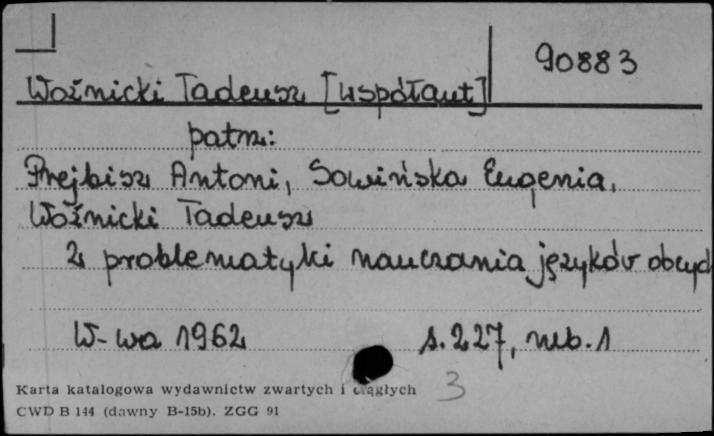 90883
Woźnicki Tadeusz [współaut]
patrz:
Prejbisz Antoni, Sowińska Eugenia,
Woźnicki Tadeusz
Z problematyki nauczania języków obcych
W-wa 1962 s. 227, nlb. 1
3
Karta katalogowa wydawnictw zwartych i ciągłych
CWD B 144 (dawny B-15b). ZGG 91